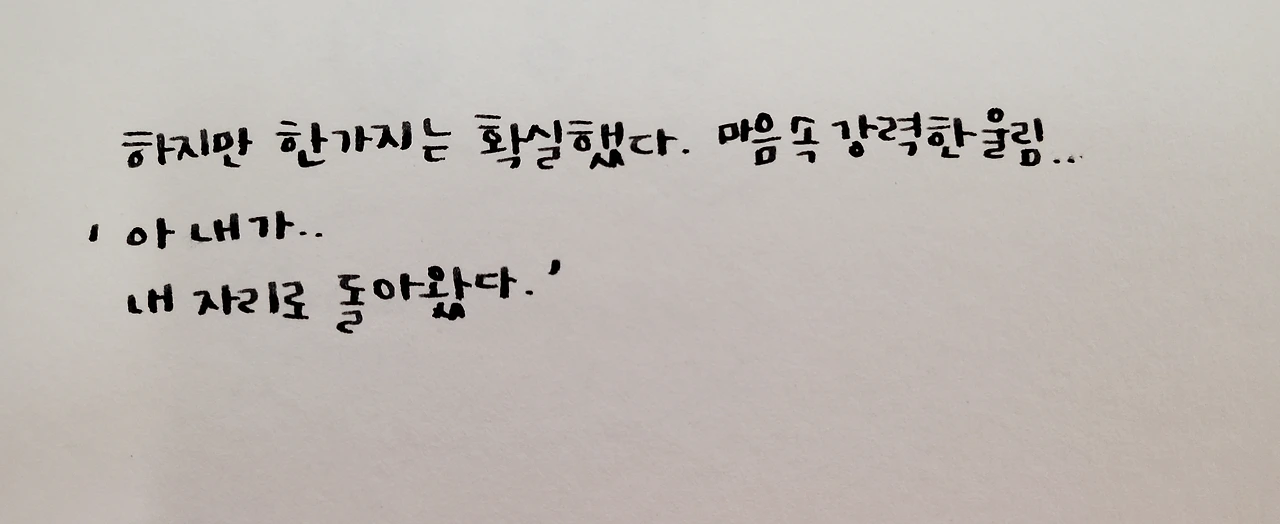 하지만 한가지는 확실했다. 마음속 강력한 울림...
' 아 내가..
내 자리로 돌아왔다.'